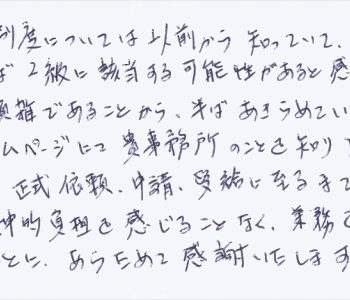 制度については以前から知っていて、
ば2級に該当する可能性があると感
煩雑であることから、半ばあきらめてい
ムページにて貴事務所のことを知り
正式依頼、申請、受給に至るまで
神的負担を感じることなく、業務
とに、あらためて感謝いたします